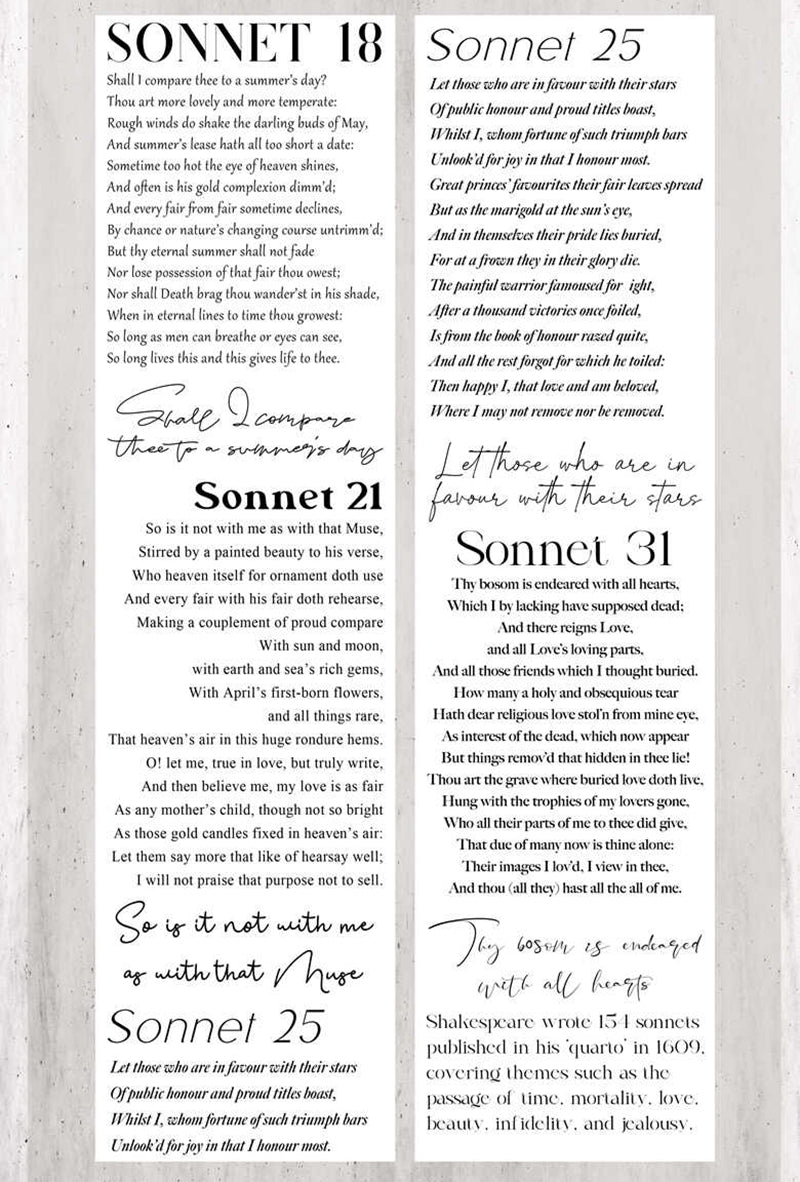 SONNET 18
Shall I compare thee to a summer's day?
Thou art more lovely and more temperate:
Rough winds do shake the darling buds of May,
And summer's lease hath all too short a date:
Sometime too hot the eye of heaven shines,
And often is his gold complexion dimm'd;
And every fair from fair sometime declines,
By chance or nature's changing course untrimm'd;
But thy eternal summer shall not fade
Nor lose possession of that fair thou owest;
Nor shall Death brag thou wander'st in his shade,
When in eternal lines to time thou growest:
So long as men can breathe or eyes can see,
So long lives this and this gives life to thee.
Shall I compare
thee to a summer's day
Sonnet 21
So is it not with me as with that Muse,
Stirred by a painted beauty to his verse,
Who heaven itself for ornament doth use
And every fair with his fair doth rehearse,
Making a couplement of proud compare
With sun and moon,
with earth and sea's rich gems,
With April's first-born flowers,
and all things rare,
That heaven's air in this huge rondure hems.
O! let me, true in love, but truly write,
And then believe me, my love is as fair
As any mother's child, though not so bright
As those gold candles fixed in heaven's air:
Let them say more that like of hearsay well;
I will not praise that purpose not to sell.
So is it not with me
as with that Muse
Sonnet 25
Let those who are in favour with their stars
Of public honour and proud titles boast,
Whilst I, whom fortune of such triumph bars
Unlook'd for joy in that I honour most.
Sonnet 25
Let those who are in favour with their stars
Of public honour and proud titles boast,
Whilst I, whom fortune of such triumph bars
Unlook'd for joy in that I honour most.
Great princes' favourites their fair leaves spread
But as the marigold at the sun's eye,
And in themselves their pride lies buried,
For at a frown they in their glory die.
The painful warrior famoused for ight,
After a thousand victories once foiled,
Is from the book of honour razed quite,
And all the rest forgot for which he toiled:
Then happy I, that love and am beloved,
Where I may not remove nor be removed.
Let those who are in
favour with their stars
Sonnet 31
Thy bosom is endeared with all hearts,
Which I by lacking have supposed dead;
And there reigns Love,
and all Love's loving parts,
And all those friends which I thought buried.
How many a holy and obsequious tear
Hath dear religious love stol'n from mine eye,
As interest of the dead, which now appear
But things remov'd that hidden in thee lie!
Thou art the grave where buried love doth live,
Hung with the trophies of my lovers gone,
Who all their parts of me to thee did give,
That due of many now is thine alone:
Their images I lov'd, I view in thee,
And thou (all they) hast all the all of me.
Thy bosom is endeared
with all hearts
Shakespeare wrote 154 sonnets
published in his 'quarto' in 1609,
covering themes such as the
passage of time, mortality, love,
beauty, infidelity, and jealousy.